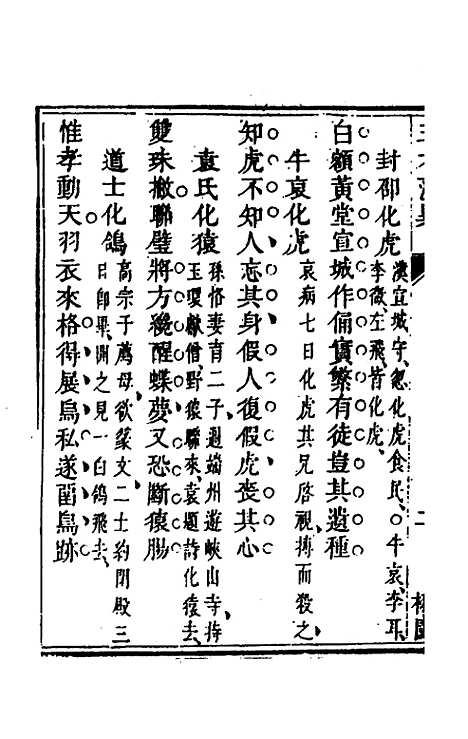 封邵化虎 漢宣城守忽化虎食民○牛哀李耳
李徵左飛皆化虎
白額黃堂宣城作倀實繁有徒豈其遺種
牛哀化虎 哀病七日化虎其兄啓視搏而殺之
知虎不知人忘其身假人復假虎喪其心
袁氏化猿 孫恪妻育二子過端州遊峽山寺持
玉環獻僧野猿聯來袁題詩化猿去
雙珠撤聯璧將方纔醒蝶夢又恐斷猿腸
道士化鴿 高宗子薦母欲籙文二士約閉殿三
日即畢渊之見一白鴿飛去
惟孝動天羽衣來格得展烏私遂留鳥跡
二